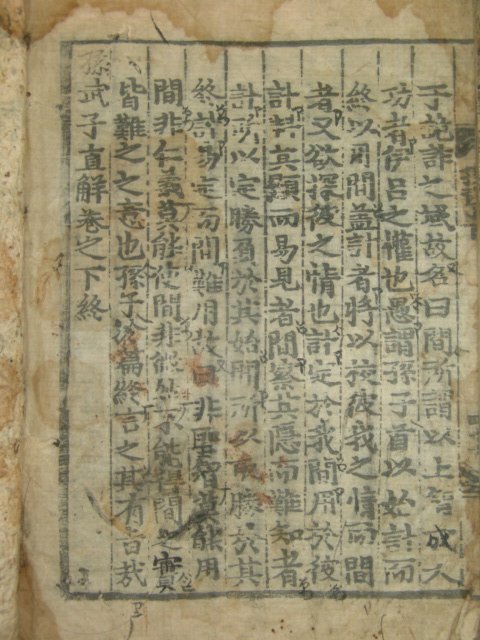 于詭詐之域故名曰間所謂以上智成大
功者伊呂之權也愚謂孫子首以始計而
終以用間蓋計者將以校彼我之情而間
者又欲探彼之情也計定於我間用於彼
計料其顯而易見者間察其隱而難知者
計所以定勝負於其始間所以取勝於其
終計易定而間難用故曰非聖智莫能用
間非仁義莫能使間非不能得間之實
皆難之之意也孫子於篇終言之其有旨哉
孫武子直解卷之下終